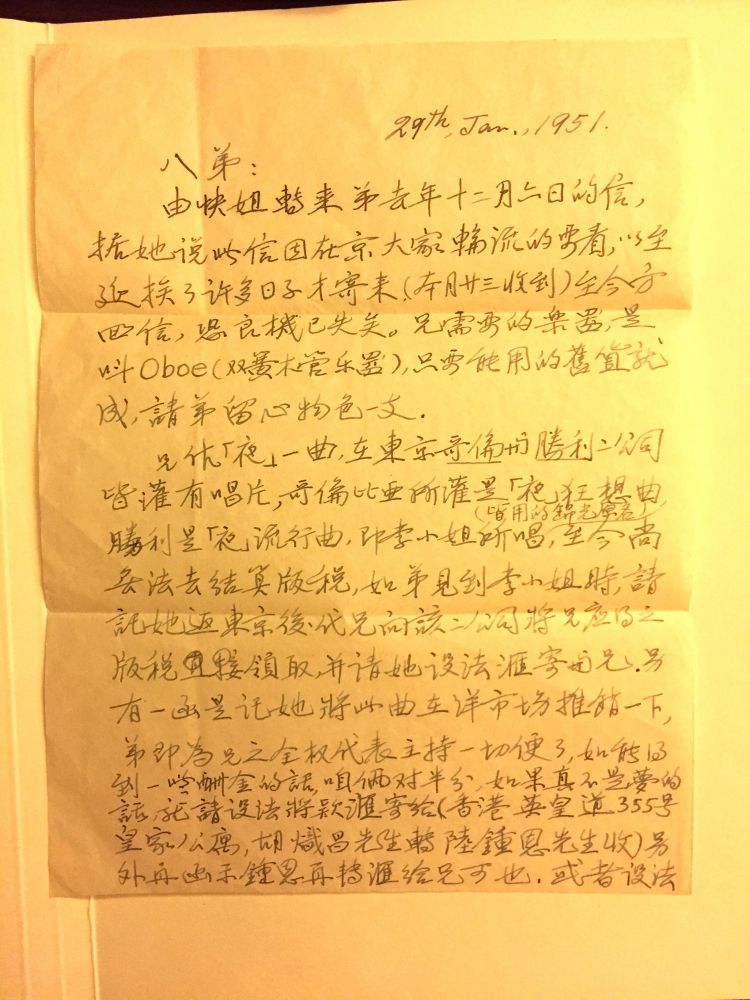 29th, Jan., 1951.
八弟:
由快姐轉来弟去年十二月六日的信,
据她说此信因在京大家輪流的要看,以至
延挨了许多日子才寄来(本月廿三收到)至今方
回信,恐良機已失矣。兄需要的楽器,是
叫Oboe(双簧木管乐器),只要能用的舊貨就
成,請弟留心物色一支.
兄作「夜」一曲,在東京哥倫毋勝利二公司
皆灌有唱片,哥倫比亚所灌是「夜狂想曲,
(皆用的錦光署名)
勝利是「夜流行曲,即李小姐所唱,至今尚
無法去结算版税,如弟見到李小姐時,請
託她返東京後代兄向該二公司將兄应得之
版税直接領取,并请她设法滙寄与兄.另
有一函是託她將此曲在洋市场推銷一下,
弟即為兄之全权代表主持一切便了,如能得
到一些酬金的話,咱倆对半分,如果真不是夢的
話,就請设法將款滙寄给(香港英皇道355号
皇家公寓,胡熾昌先生轉陸鍾恩先生收)另
外再函示鍾恩再轉滙给兄可也.或者设法